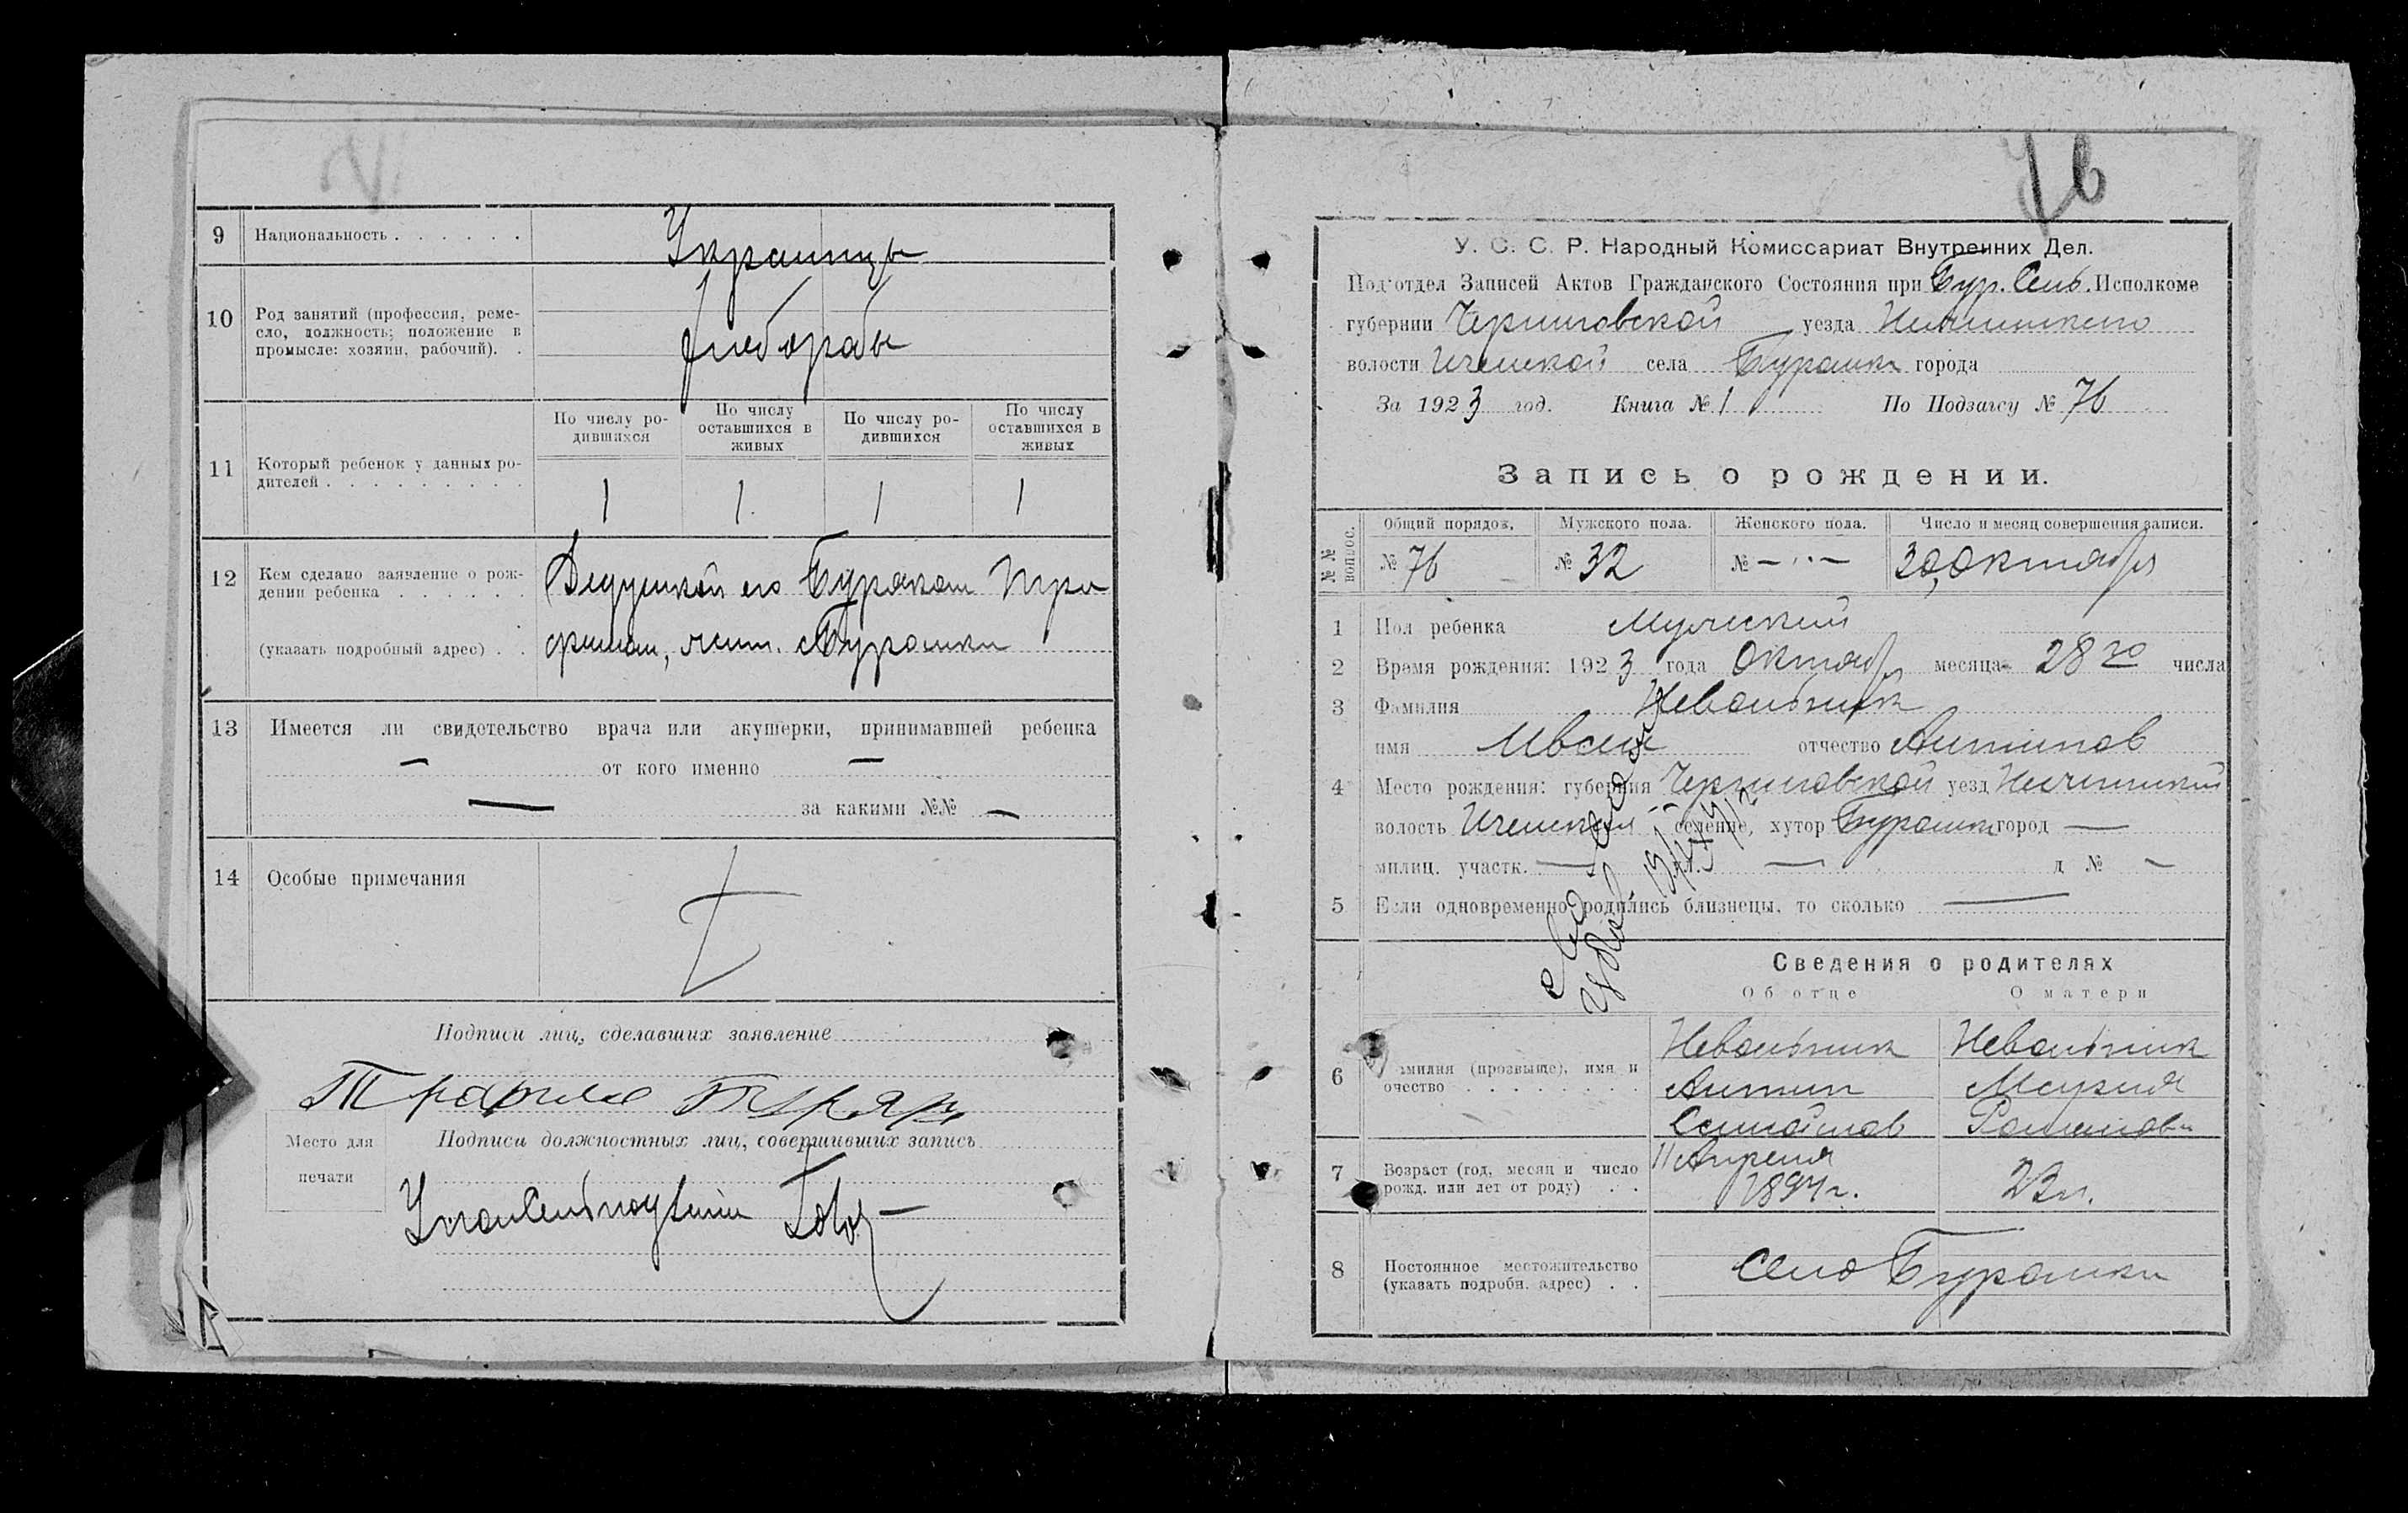 9 Национальность . . . . . . Украинцы
10 Род занятий (профессия, реме-
сло, должность; положение в
промысле: хозяин, рабочий). .
хлеборобы
По числу ро-
дившихся
По числу
оставшихся в
живых
По числу ро-
дившихся
По числу
оставшихся в
живых
11 Который ребенок у данных ро-
дителей . . . . . . . . .
1 1. 1 1
12 Кем сделано заявление о рож-
дении ребенка . . . . . .
(указать подробный адрес) . .
Дедушкой его Бураком Тро
фимом, жит. с. Бурамки
13 Имеется ли свидетельство врача или акушерки, принимавшей ребенка
— от кого именно —
— за какими №№ —
14 Особые примечания
Подписи лиц, сделавших заявление
Трофим Буряк
Место для
печати
Подписи должностных лиц, совершивших запись
76
У. С. С. Р. Народный Комиссариат Внутренних Дел.
Подотдел Записей Актов Гражданского Состояния при Бур. Сель. Исполкоме
губернии Черниговской уезда Нежинского
волости Иченской села Бурамки города
За 1923 год. Книга № 1 По Подзагсу № 76
Запись о рождении.
№№ вопрос.
Общий порядок. Мужского пола. Женского пола. Число и месяц совершения записи.
№ 76 № 32 № — 30 Октября
1 Пол ребенка Мужский
2 Время рождения: 1923 года Октября месяца 28 го числа
3 Фамилия Невольник
имя отчество Антипов
4 Место рождения: губерния Черниговской уезд Нежинский
волость Иченской селение, хутор Бурамки город —
милиц. участк. — ул. — д № —
5 Если одновременно родились близнецы, то сколько —
Сведения о родителях
Об отце О матери
6 Фамилия (прозвыще), имя и
очество . . . . . . . .
Невольник
Антип
Невольник
Мария
7 Возраст (год, месяц и число
рожд. или лет от роду) . .
11 Апреля
1897 г.
23 л.
8 Постоянное местожительство
(указать подробн. адрес) . .
Село Бурамки